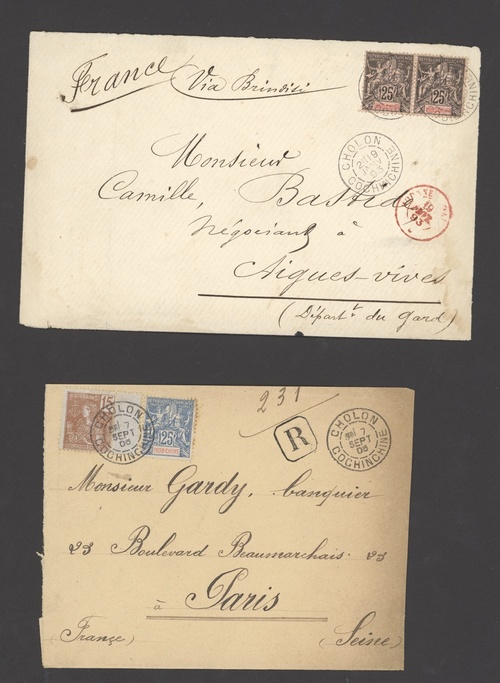 France
Via Brindisi
25
25
CHOLON
COCHINCHINE
Monsieur
Camille, Bastid
Négociant à
Aigues-vives
(Départ.t du Gard)
19
93
15
25
INDO-CHINE
CHOLON
7
SEPT
06
COCHINCHINE
231
R
CHOLON
7
SEPT
06
COCHINCHINE
Monsieur Gardy, banquier
23 Boulevard Beaumarchais. 23
à Paris
(France) (Seine)